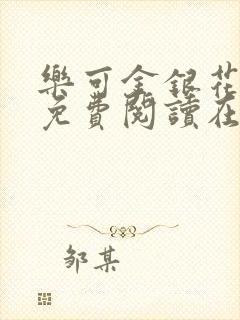 樂可金銀花
免費閱讀在
鄒某